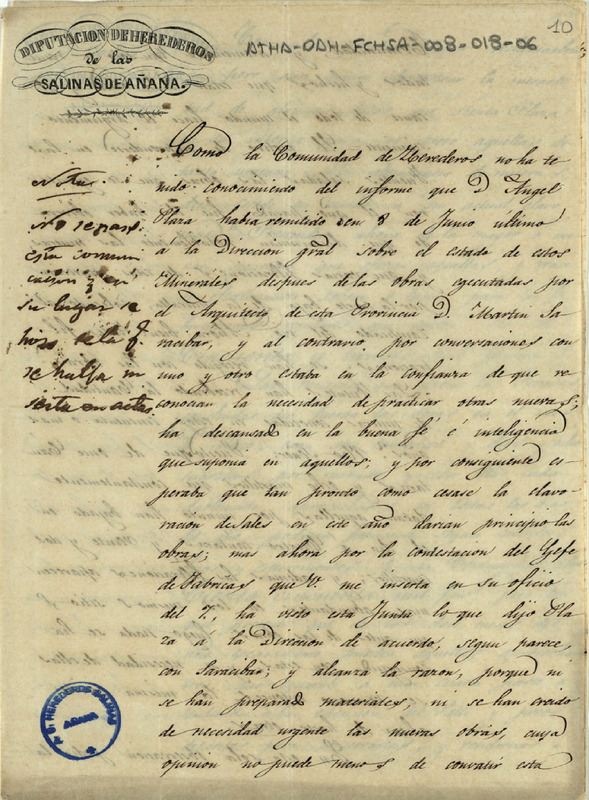 10
ATHA-DAH-FCHSA-008-018-06
DIPUTACION DE HEREDEROS
de las
SALINAS DE AÑANA.
Como la Comunidad de Herederos no ha te
nido conocimiento del informe que D. Angel
Plaza habia remitido en 8 de Junio ultimo
á la Direccion gral sobre el estado de estos
Minerales despues de las obras egecutadas por
el Arquitecto de esta Provincia D. Martin Sa
racibar, y al contrario, por conversaciones con
uno y otro estaba en la confianza de que re
conocian la necesidad de practicar otras nuevas,
ha descansado en la buena fé é inteligencia
que suponia en aquellos; y por consiguiente es
peraba que tan pronto como cesase la elavo
racion de Sales en este año darian principio las
obras; mas ahora por la contestacion del Gefe
de Fabricas que V. me inserta en su oficio
del 7, ha visto esta Junta lo que dijo Pla
za á la Direccion de acuerdo, segun parece,
con Saracibar; y alcanza la razon, porque ni
se han preparado materiales, ni se han creido
de necesidad urgente las nuevas obras, cuya
opinion no puede menos de convatir esta
Nota.
No se pasó
esta comuni
cacion y en
su lugar se
hizo de la q.
se halla in
serta en actas
A. G. HEREDEROS SALINAS
AÑANA